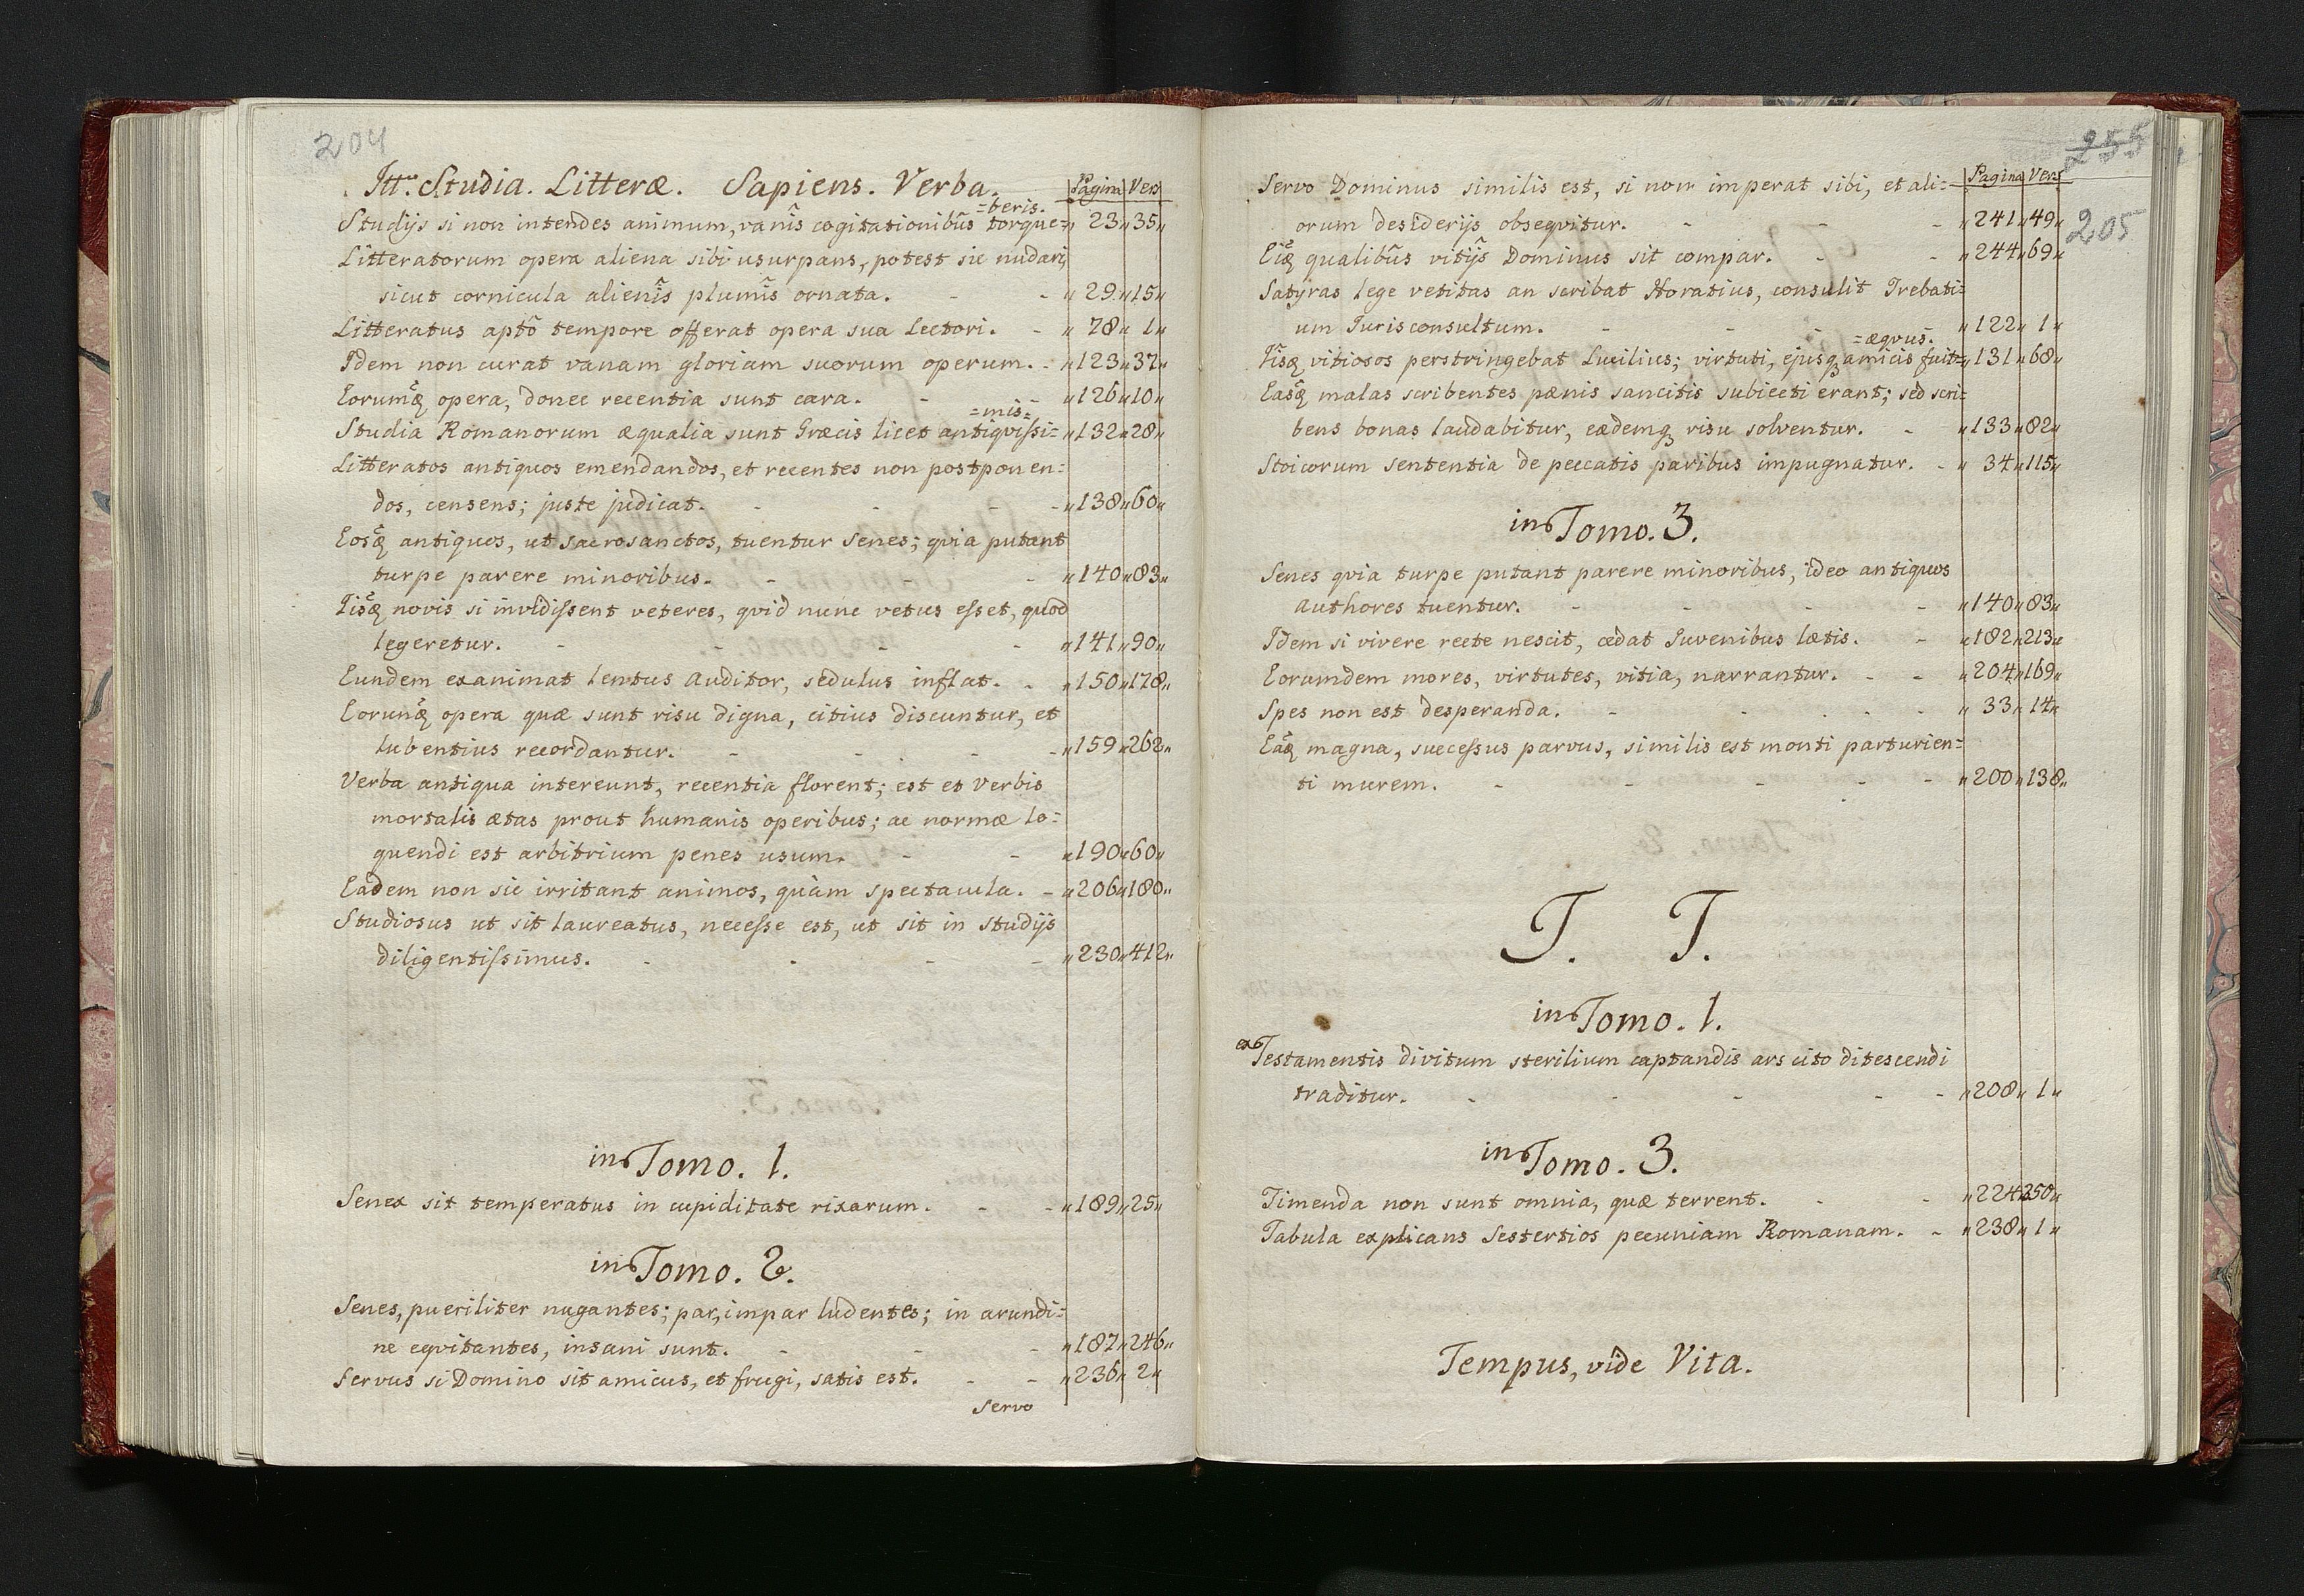 204
Ittm. Studia. Litteræ. Sapiens. Verba. Pagina Vers
=beris.
Studijs si non intendes animum, vanis cogitationibus torque= 23 35
Litteratorum opera aliena sibi usurpans, potest sic nudari,
sicut cornicula alienis plumis ornata. - - 29 15
Litteratus apto tempore offerat opera sua Lectori. - 78 1
Idem non curat vanam gloriam suorum operum. - 123 37
Eorumq opera, donec recentia sunt cara. - - 126 10
=mis=
Studia Romanorum æqualia sunt Græcis licet antiqvissi= 132 28
Litteratos antiquos emendandos, et recentes non postponen=
dos, censens; juste judicat. - - - - 138 60
Eosq antiquos, ut sacrosanctos, tuentur Senes; qvia putant
turpe parere minoribus. - - - 140 83
Iisq novis si invidissent veteres, qvid nunc vetus esset, quod
legeretur. - - - - 141 90
Eundem exanimat lentus Auditor, sedulus inflat. - 150 178
Eorunq opera quæ sunt risu digna, citius discuntur, et
lubentius recordantur. - - - - 159 262
Verba antiqua intereunt, recentia florent; est et Verbis
mortalis ætas prout humanis operibus; ac normæ lo=
quendi est arbitrium penes usum. - - 190 60
Eadem non sic irritant animos, quàm spectacula. - 206 180
Studiosus ut sit laureatus, necesse est, ut sit in studijs
diligentissimus. - - - - 230 412
in Tomo. 1.
Senex sit temperatus in cupiditate rixarum. - - 189 25
in Tomo. 2.
Senes, pueriliter nugantes; par, impar ludentes; in arundi=
ne eqvitantes, insani sunt. - - - 187 246
Servus si Domino sit amicus, et frugi, satis est. - - 236 2
Servo
255
Pagina Vers
205
Servo Dominus similis est, si non imperat sibi, et ali=
orum desiderijs obseqvitur. - - - 241 49
Eiq qualibus vitijs Dominus sit compar. - - 244 69
Satyras lege vetitas an scribat Horatius, consulit Trebati=
um Jurisconsultum. - - - 122 1
=æqvus.
Iisq vitiosos perstringebat Lucilius; virtuti, ejusq amicis fuit= 131 68
Easq malas scribentes pænis sancitis subiecti erant; sed scri=
bens bonas laudabitur, eædemq risu solventur. - 133 82
Stoicorum sententia de peccatis paribus impugnatur. - 34 115
in Tomo. 3.
Senes qvia turpe putant parere minoribus, ideo antiquos
Authores tuentur. - - - - 140 83
Idem si vivere recte nescit, cedat Juvenibus lætis. - 182 213
Eorumdem mores, virtutes, vitia, narrantur. - - 204 169
Spes non est desperanda. - - - - - 33 14
Eaq magna, successus parvus, similis est monti parturien=
ti murem. - - - - - 200 138
T. T.
in Tomo. 1.
ex Testamentis divitum sterilium captandis ars cito ditescendi
traditur. - - - - - 208 1
in Tomo. 3.
Timenda non sunt omnia, quæ terrent. - - 224 250
Tabula explicans Sestertios pecuniam Romanam. - 238 1
Tempus, vide Vita.